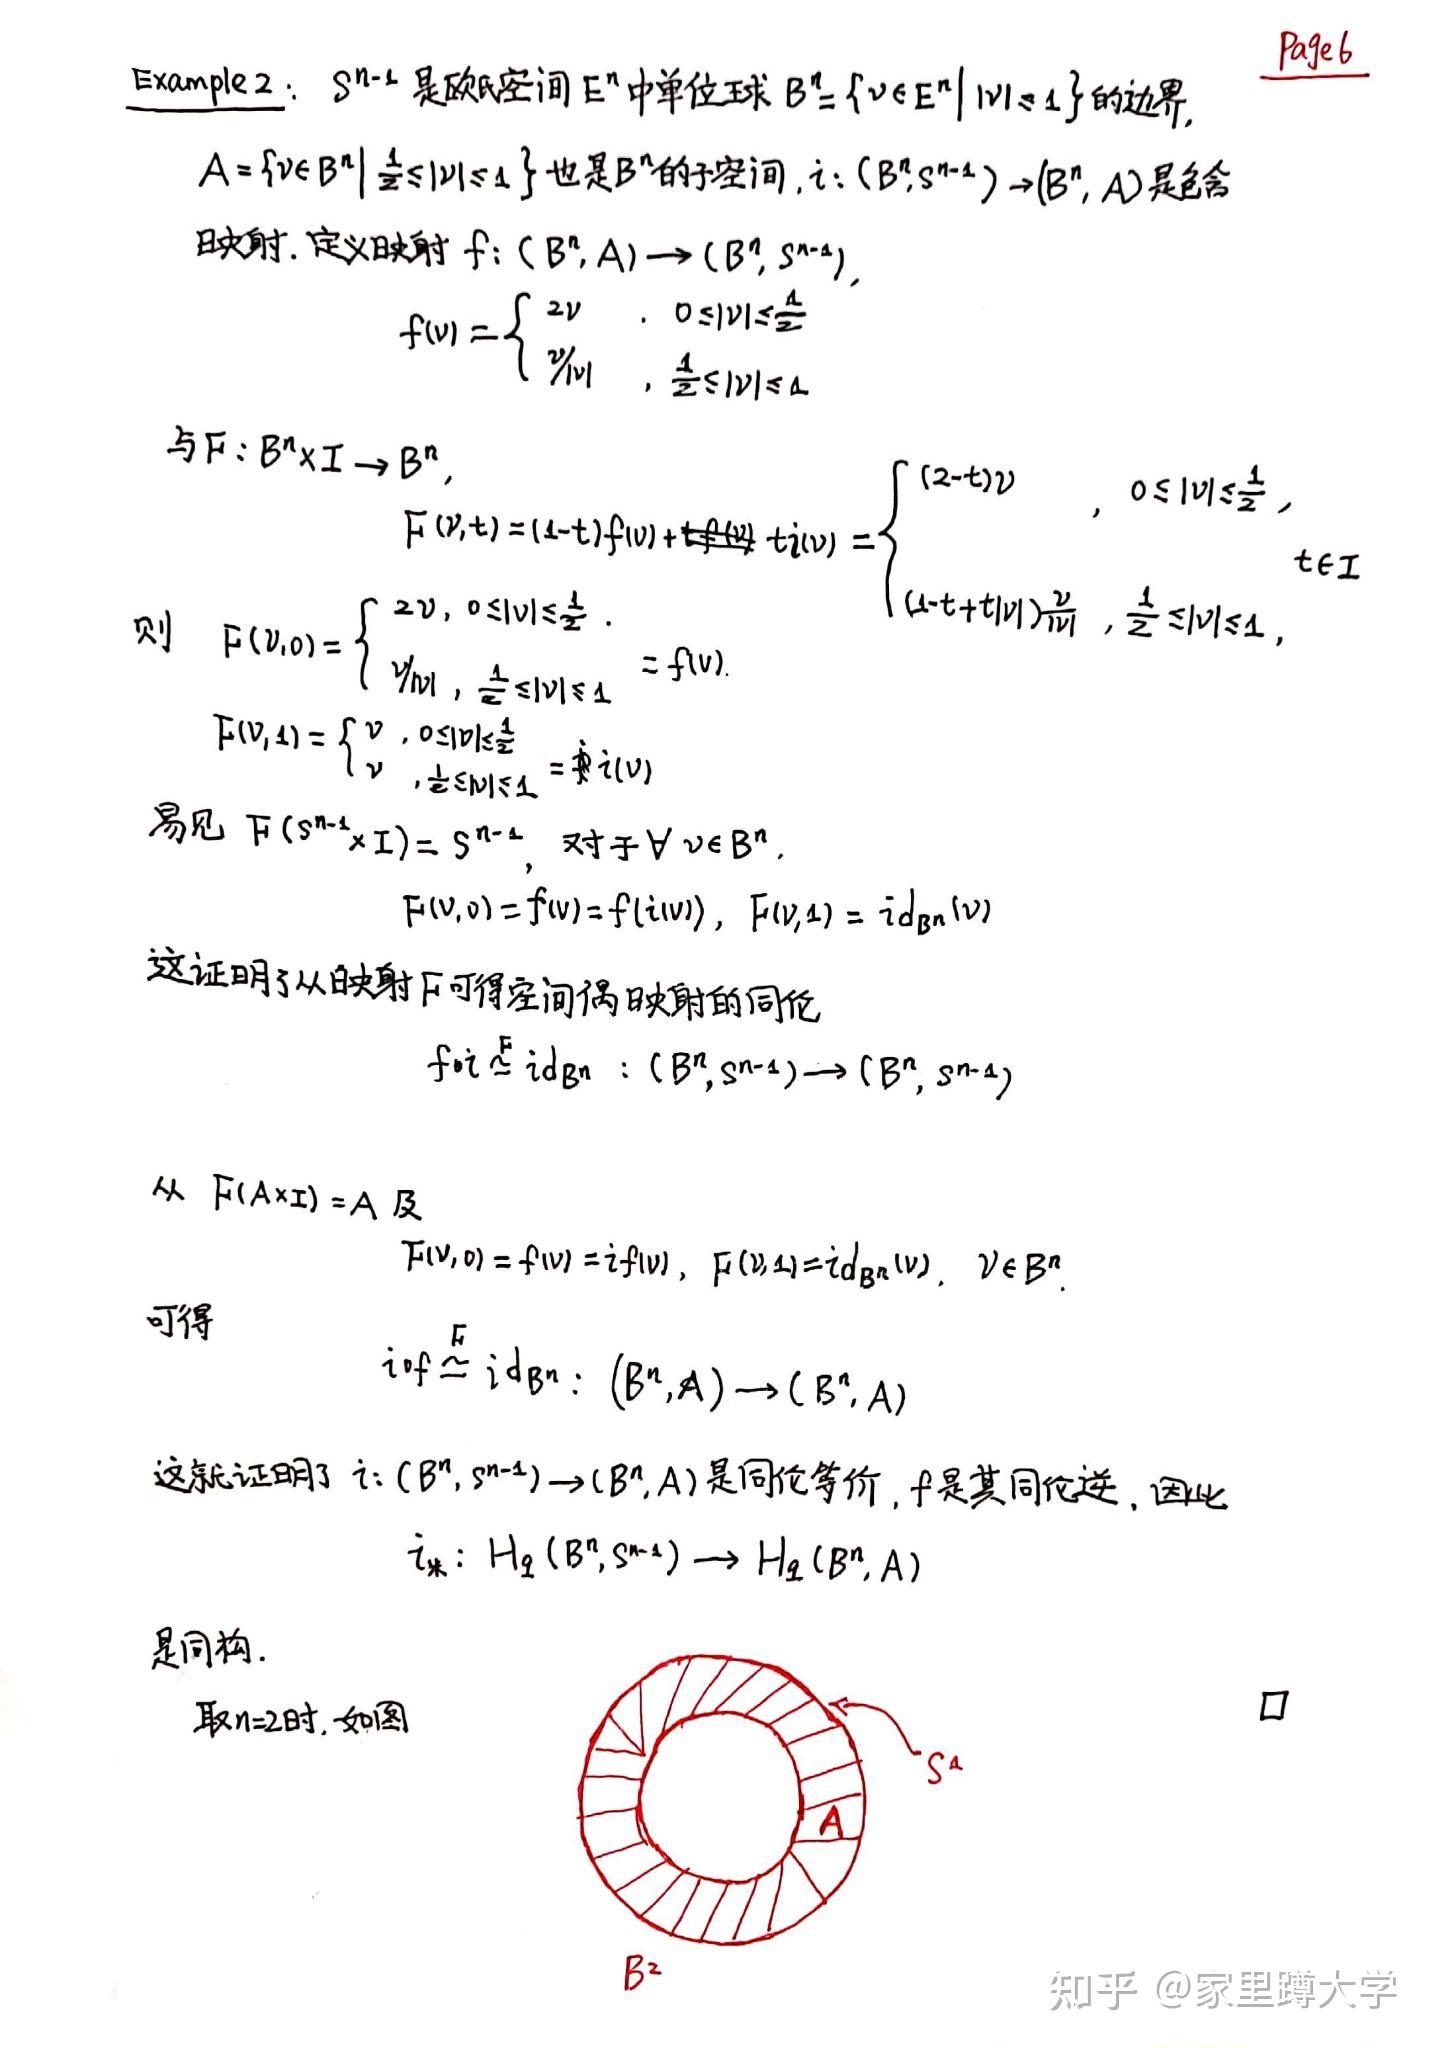 Page 6
Example 2: Sⁿ⁻¹是欧氏空间Eⁿ中单位球 Bⁿ={v∈Eⁿ| |v|≤1}的边界,
A={v∈Bⁿ| 1/2≤|v|≤1}也是Bⁿ的子空间, i:(Bⁿ,Sⁿ⁻¹)→(Bⁿ,A)是包含
映射. 定义映射 f:(Bⁿ,A)→(Bⁿ,Sⁿ⁻¹),
f(v)={ 2v , 0≤|v|≤1/2
v/|v| , 1/2≤|v|≤1
与F:Bⁿ×I→Bⁿ,
F(v,t)=(1-t)f(v)+ti(v)={ (2-t)v , 0≤|v|≤1/2,
t∈I
(1-t+t|v|)v/|v| , 1/2≤|v|≤1,
则 F(v,0)={ 2v, 0≤|v|≤1/2.
v/|v|, 1/2≤|v|≤1 =f(v).
F(v,1)={ v , 0≤|v|≤1/2
v , 1/2≤|v|≤1 = i(v)
易见 F(Sⁿ⁻¹×I)=Sⁿ⁻¹, 对于∀ v∈Bⁿ.
F(v,0)=f(v)=f(i(v)), F(v,1)=id_Bⁿ(v)
这证明了从映射F可得空间偶映射的同伦
f∘i ≃^F id_Bⁿ : (Bⁿ,Sⁿ⁻¹)→(Bⁿ,Sⁿ⁻¹)
从 F(A×I)=A 及
F(v,0)=f(v)=if(v), F(v,1)=id_Bⁿ(v). v∈Bⁿ.
可得
i∘f ≃^F id_Bⁿ: (Bⁿ,A)→(Bⁿ,A)
这就证明了 i:(Bⁿ,Sⁿ⁻¹)→(Bⁿ,A)是同伦等价, f是其同伦逆, 因此
i_*: H_q(Bⁿ,Sⁿ⁻¹)→H_q(Bⁿ,A)
是同构.
取n=2时, 如图
□
S¹
A
B²
知乎 @家里蹲大学